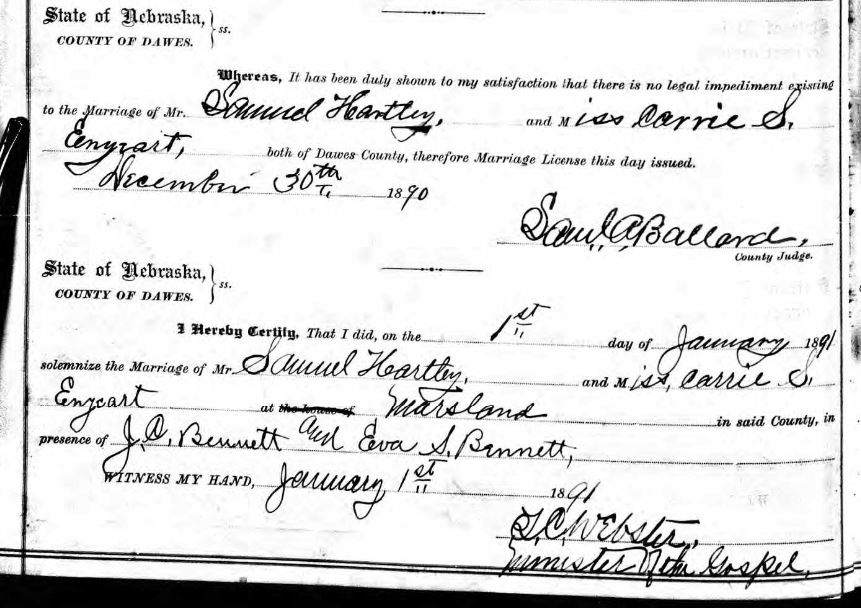 State of Nebraska,
COUNTY OF DAWES. } ss.
Whereas, It has been duly shown to my satisfaction that there is no legal impediment existing
to the Marriage of Mr. Samuel Hartley, and Miss Carrie S.
Enyeart, both of Dawes County, therefore Marriage License this day issued.
December 30th 1890
Saml. A. Ballard,
County Judge.
State of Nebraska,
COUNTY OF DAWES. } ss.
I Hereby Certify, That I did, on the 1st day of January 1891
solemnize the Marriage of Mr. Samuel Hartley, and Miss, Carrie S.
Enyeart at the house of Marsland in said County, in
presence of J. C. Bennett and Eva S. Bennett,
WITNESS MY HAND, January 1st 1891
Webster,
Minister of the Gospel,